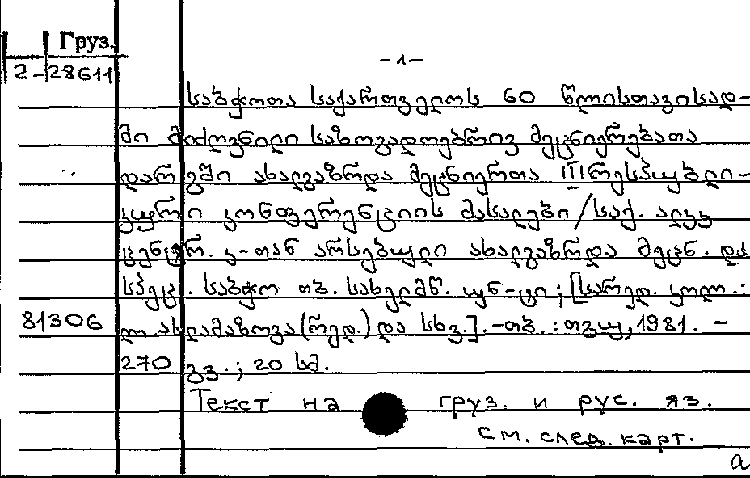 Груз.
-1-
2-28611
საბჭოთა საქართველოს 60 წლისთავისად-
მი მიძღვნილი საზოგადოებრივ მეცნიერებათა
დარგში ახალგაზრდა მეცნიერთა III რესპუბლი-
კური კონფერენციის მასალები/საქ. ალკკ
ცენტრ. კ-თან არსებული ახალგაზრდა მეცნ. და
სპეც. საბჭო თბ. სახელმწ. უნ-ტი; [სარედ. კოლ.:
81306
ლ. ასლამაზოვა (რედ.) და სხვ.]. -თბ.: თგუ, 1981. -
270 გვ.; 20 სმ.
Текст на груз. и рус. яз.
см. след. карт.
а